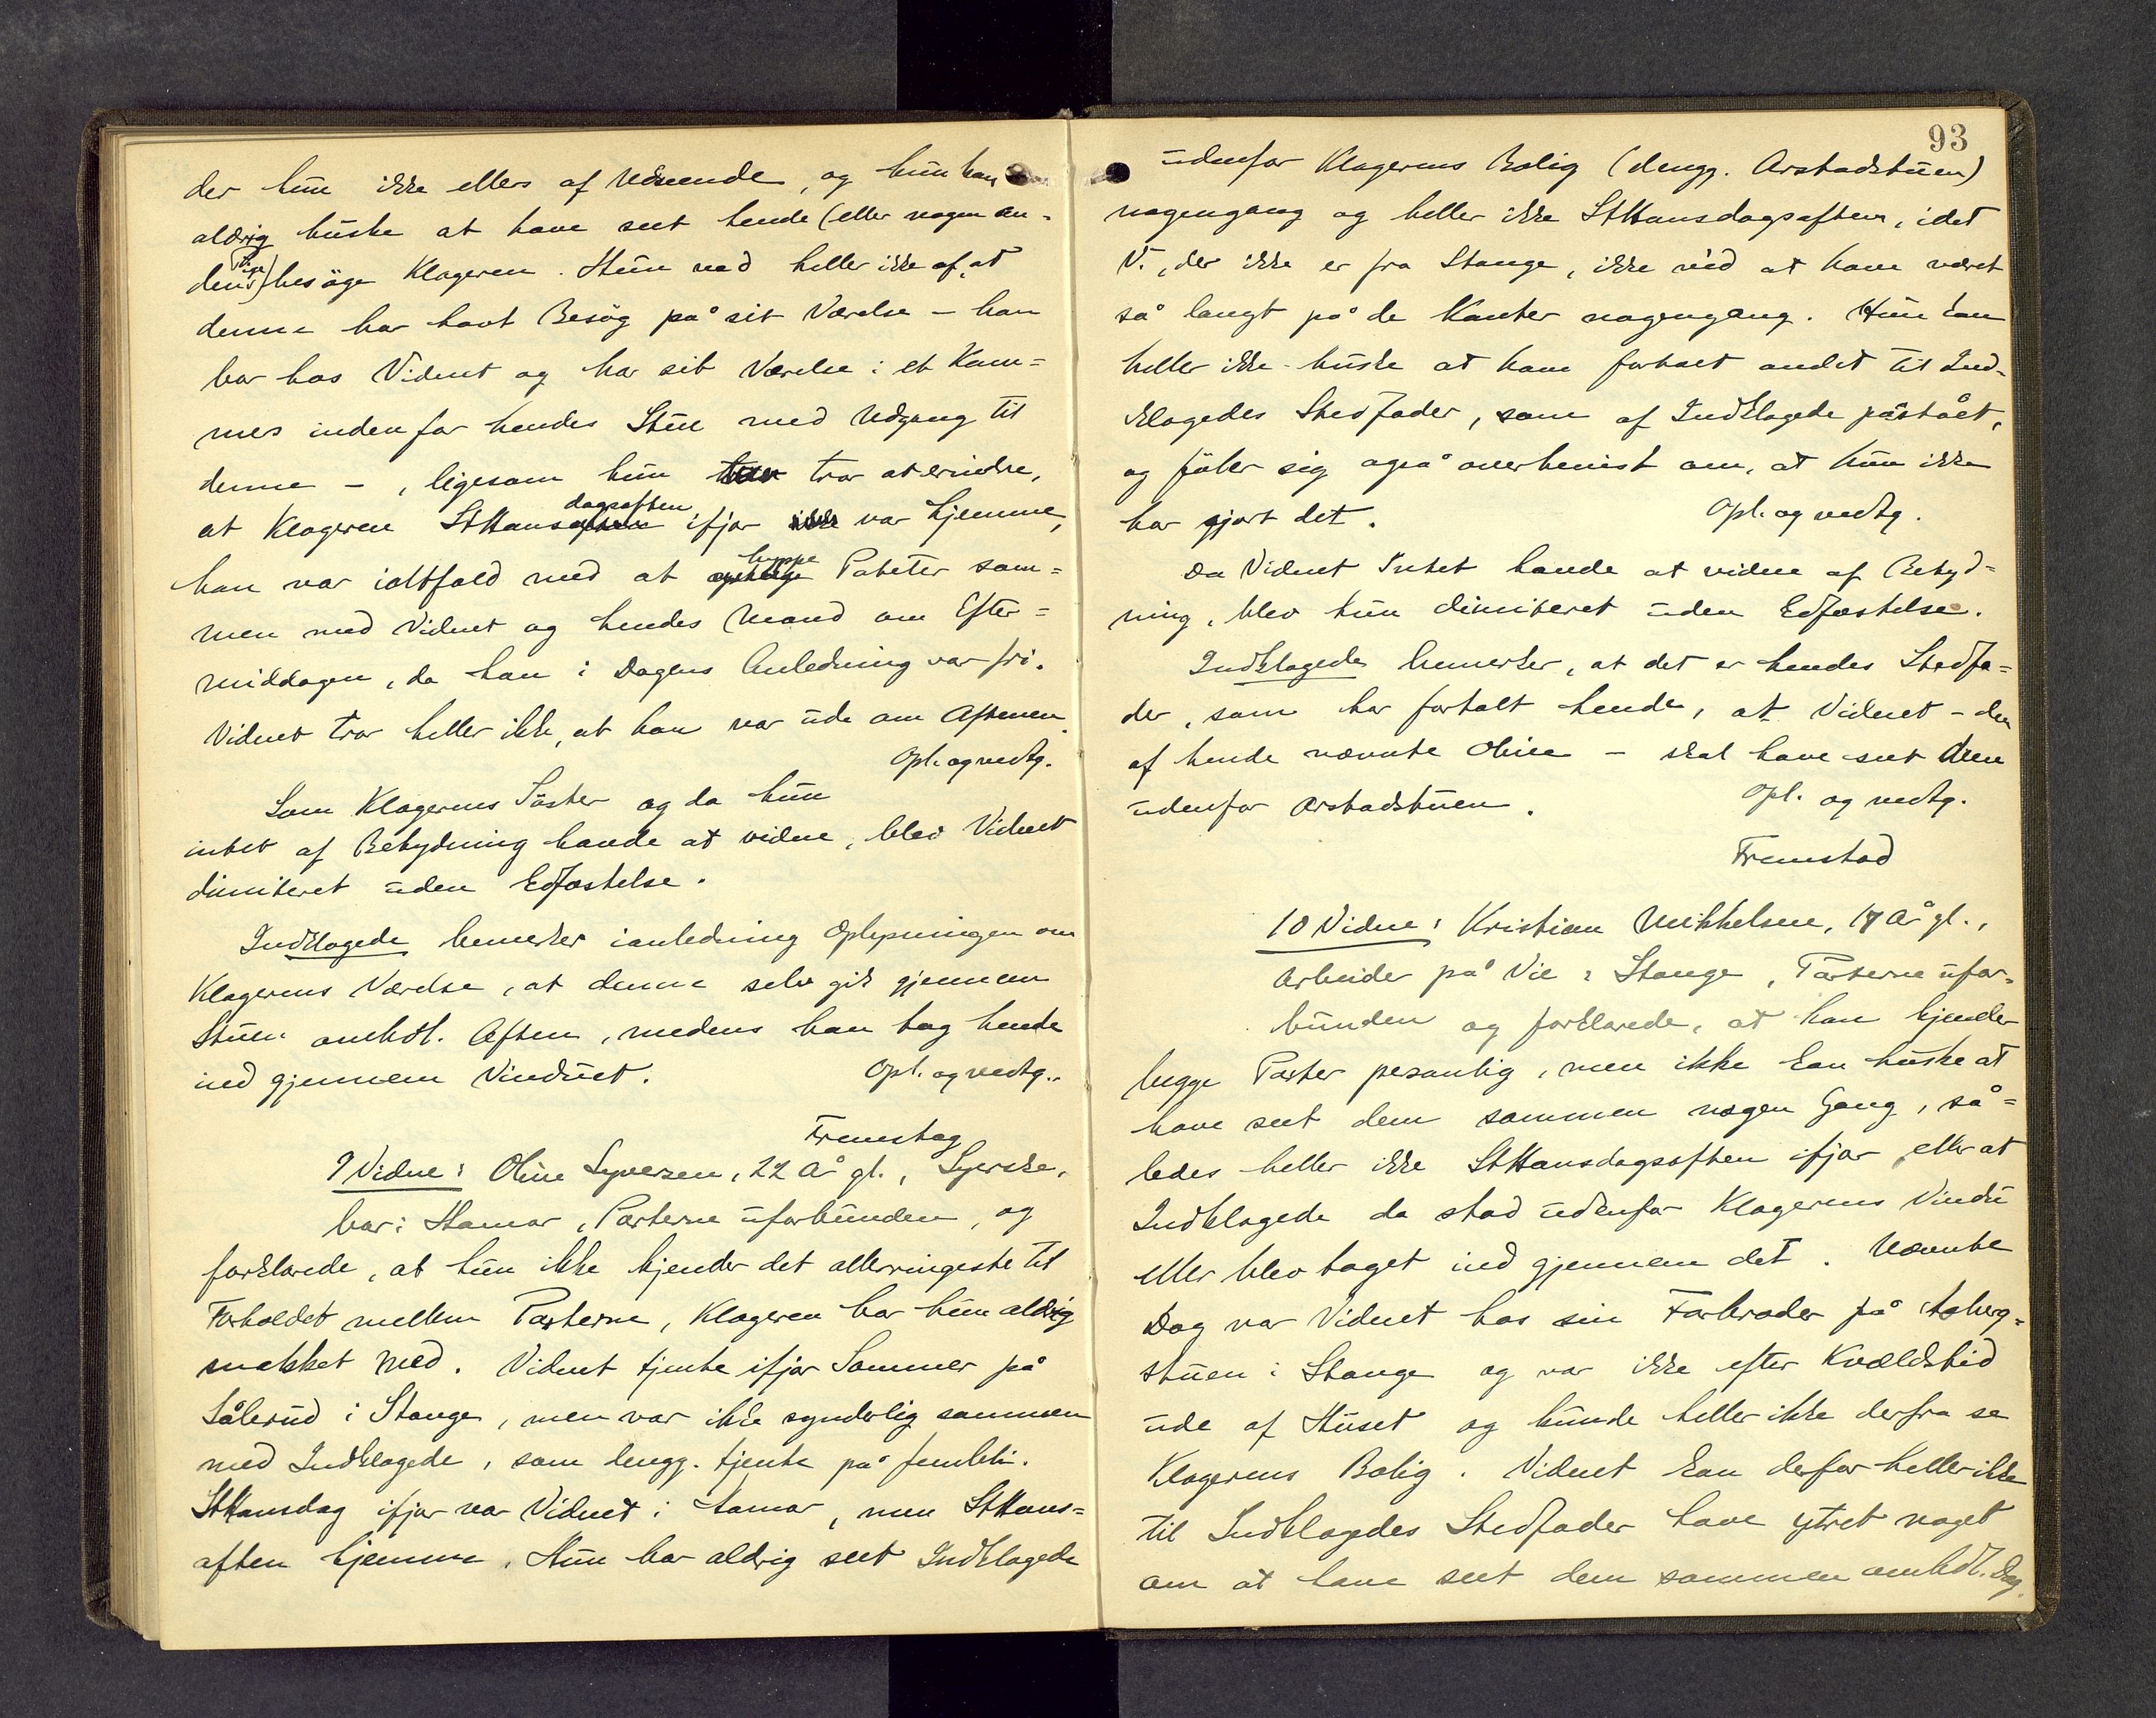 der hun ikke ellers af Udseende, og hun kan
aldrig huske at have seet hende (eller nogen an-
den Pige) besøge Klageren. Hun ved heller ikke af, at
denne har havt Besøg på sit Værelse – han
bor hos Vidnet og har sit Værelse i et Kam=
mes indenfor hendes Stue med Udgang til
denne –, ligesom hun tror at erindre,
at Klageren StHansdagsaften ifjor var hjemme,
han var ialtfald med at hyppe Poteter sam=
men med Vidnet og hendes Mand om Efter=
middagen, da han i Dagens Anledning var fri.
Vidnet tror heller ikke, at han var ude om Aftenen.
Opl. og vedtg.
Som Klagerens Søster og da hun
intet af Betydning havde at vidne, blev Vidnet
dimiteret uden Edfæstelse.
Indklagede bemerker ianledning Oplysningen om
Klagerens Værelse, at denne selv gik gjennem
Stuen omhdl. Aften, medens han tog hende
ind gjennem Vinduet. Opl. og vedtg.
Fremstog
9 Vidne: Oline Syversen, 22 År gl., Syerske,
bor i Hamar, Parterne uforbunden, og
forklarede, at hun ikke kjender det allerringeste til
Forholdet mellem Parterne, Klageren har hun aldrig
snakket med. Vidnet tjente ifjor Sommer på
Sålerud i Stange, men var ikke synderlig sammen
med Indklagede, som dengg. tjente på
StHansdag ifjor var Vidnet i Hamar, men StHans=
aften hjemme. Hun har aldrig seet Indklagede
93
udenfor Klagerens Bolig (dengg. Arstadstuen)
nogengang og heller ikke StHansdagsaften, idet
V., der ikke er fra Stange, ikke véd at have været
så langt på de Kanter nogengang. Hun kan
heller ikke huske at have fortalt andet til Ind-
klagedes Stedfader, som af Indklagede påstået,
og føler sig også overbevist om, at hun ikke
har gjort det. Opl. og vedtg.
Da Vidnet Intet havde at vidne af Betyd=
ning, blev hun dimiteret uden Edfæstelse.
Indklagede bemerker, at det er hendes Stedfa=
der, som har fortalt hende, at Vidnet – den
af hende nævnte Oline – skal have seet dem
udenfor Arstadstuen. Opl. og vedtg.
Fremstod
10 Vidne: Kristian Mikkelsen, 17 År gl.,
Arbeider på Vie i Stange, Parterne ufor-
bunden og forklarede, at han kjender
begge Parter personlig, men ikke kan huske at
have seet dem sammen nogen Gang, så=
ledes heller ikke StHansdagsaften ifjor, eller at
Indklagede da stod udenfor Klagerens Vindu
eller blev taget ind gjennem det. Nævnte
Dag var Vidnet hos sin Farbroder på
stuen i Stange og var ikke efter Kvældstid
ude af Huset og kunde heller ikke derfra se
Klagerens Bolig. Vidnet kan derfor heller ikke
til Indklagedes Stedfader have ytret noget
om at have seet dem sammen omhdl. Dag.